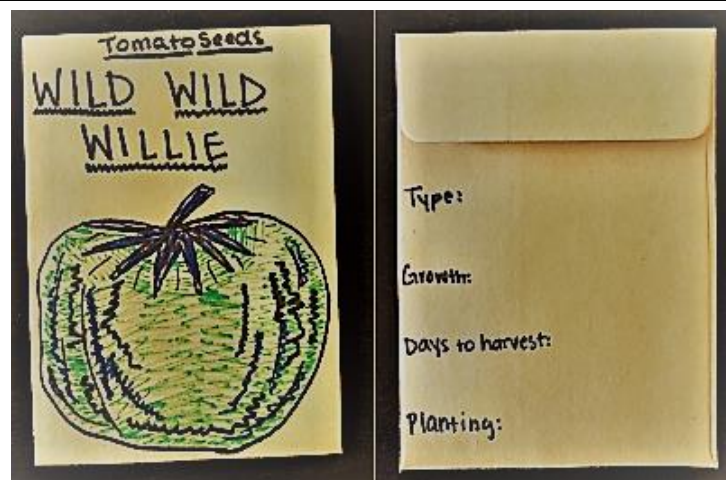 Tomato Seeds
WILD WILD
WILLIE
Type:
Growth:
Days to harvest:
Planting: